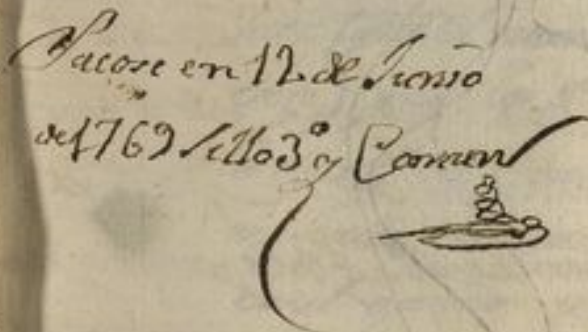 Sacose en 12 de Junio
de 1769 sello 3º y Comun